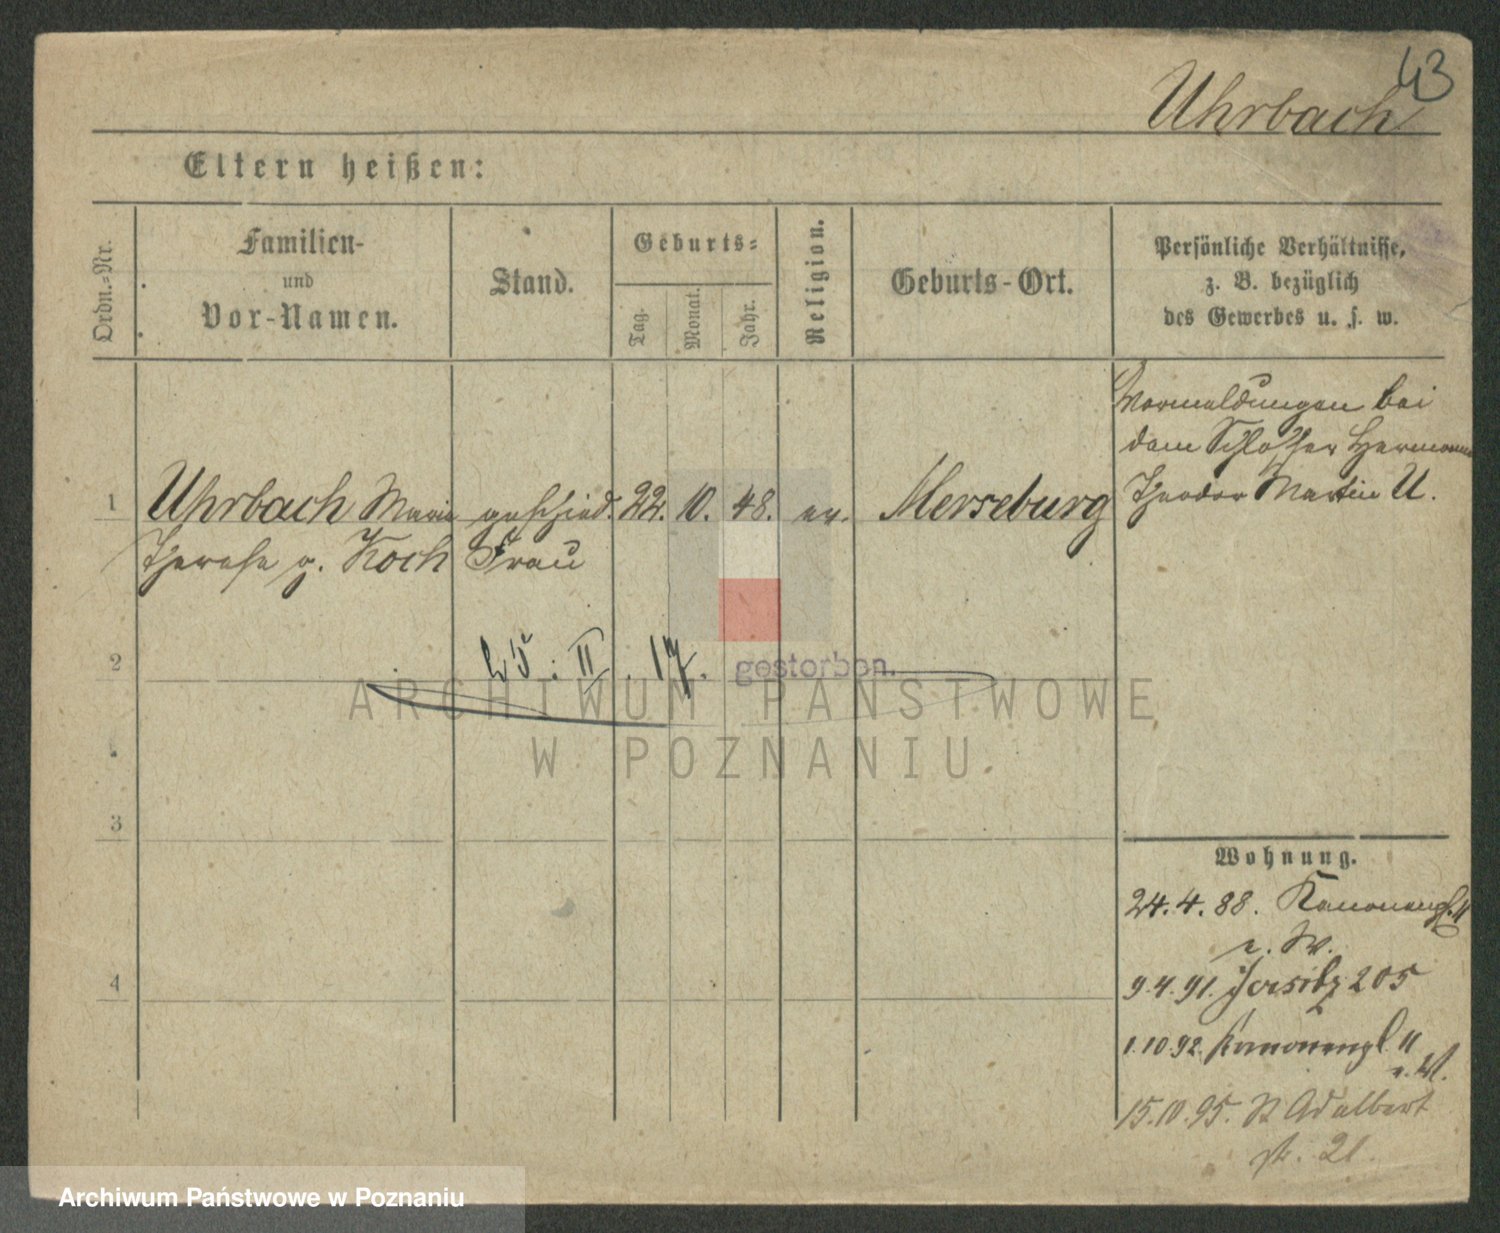 43
Uhrbach
Eltern heißen:
Ordn.-Nr.
Familien-
und
Vor-Namen.
Stand.
Geburts-
Tag.
Monat.
Jahr.
Religion.
Geburts-Ort.
Persönliche Verhältnisse,
z. B. bezüglich
des Gewerbes u. s. w.
Vormeldungen bei
dem Schlosser Hermann
Theodor Martin U.
1 Uhrbach Marie geschied. 22. 10. 48. ev. Merseburg
Therese g. Koch Frau
2
25. II. 17. gestorben.
ARCHIWUM PAŃSTWOWE
W POZNANIU
3
Wohnung.
24. 4. 88. Kanonenpl. 11
b. W.
4
9. 4. 91. Jersitz 205
1. 10. 92. Kanonenpl. 11
15. 10. 95. St Adalbert
str. 21.
Archiwum Państwowe w Poznaniu